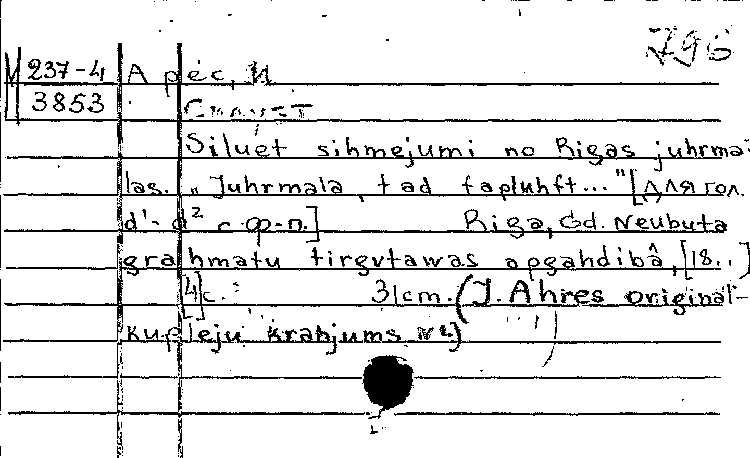 796
М 237-4 Арес, И
3853 Силуэт
Siluet sihmejumi no Rigas juhrma=
las. „Juhrmala, tad sapluhst..." [для гол.
d¹-d² с ф-п.] Riga, Ed. Neubuta
grahmatu tirgutawas apgahdibâ, [18..]
[4] с. 31cm. (J. Ahres original-
kupleju krahjums №2)